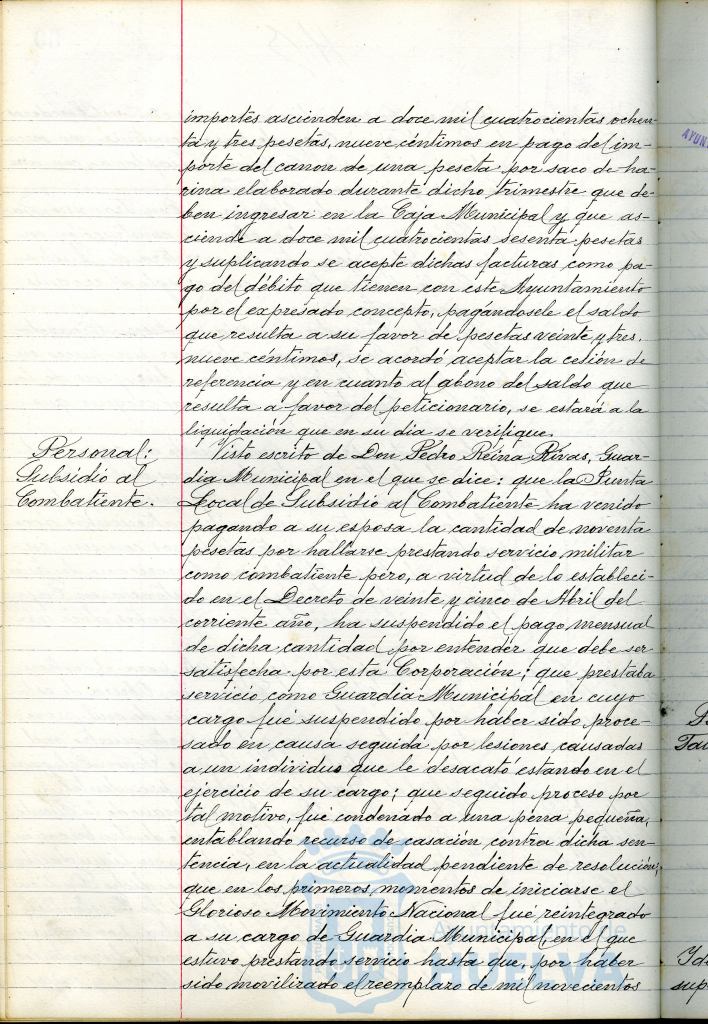 importes ascienden a doce mil cuatrocientas ochen-
ta y tres pesetas, nueve céntimos en pago del im-
porte del canon de una peseta por saco de ha-
rina elaborado durante dicho trimestre que de-
ben ingresar en la Caja Municipal y que as-
ciende a doce mil cuatrocientas sesenta pesetas
y suplicando se acepte dichas facturas como pa-
go del débito que tienen con este Ayuntamiento
por el expresado concepto, pagándosele el saldo
que resulta a su favor de pesetas veinte y tres,
nueve céntimos, se acordó aceptar la cesión de
referencia y en cuanto al abono del saldo que
resulta a favor del peticionario, se estará a la
liquidación que en su dia se verifique.
Personal:
Subsidio al
Combatiente.
Visto escrito de Don Pedro Reina Rivas, Guar-
dia Municipal en el que se dice: que la Junta
Local de Subsidio al Combatiente ha venido
pagando a su esposa la cantidad de noventa
pesetas por hallarse prestando servicio militar
como combatiente pero, a virtud de lo estableci-
do en el Decreto de veinte y cinco de Abril del
corriente año, ha suspendido el pago mensual
de dicha cantidad por entender que debe ser
satisfecha por esta Corporación; que prestaba
servicio como Guardia Municipal en cuyo
cargo fué suspendido por haber sido proce-
sado en causa seguida por lesiones causadas
a un individuo que le desacató estando en el
ejercicio de su cargo; que seguido proceso por
tal motivo, fué condenado a una pena pequeña,
entablando recurso de casación contra dicha sen-
tencia, en la actualidad pendiente de resolución;
que en los primeros momentos de iniciarse el
Glorioso Movimiento Nacional fué reintegrado
a su cargo de Guardia Municipal en el que
estuvo prestando servicio hasta que, por haber
sido movilizado el reemplazo de mil novecientos
Ayuntamiento de
HUELVA
AYUN
Tau
Ide
sup